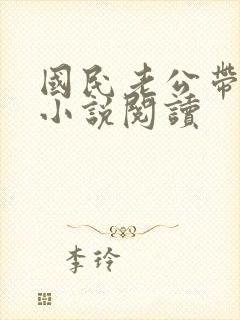 國民老公帶
小說閱讀
李玲